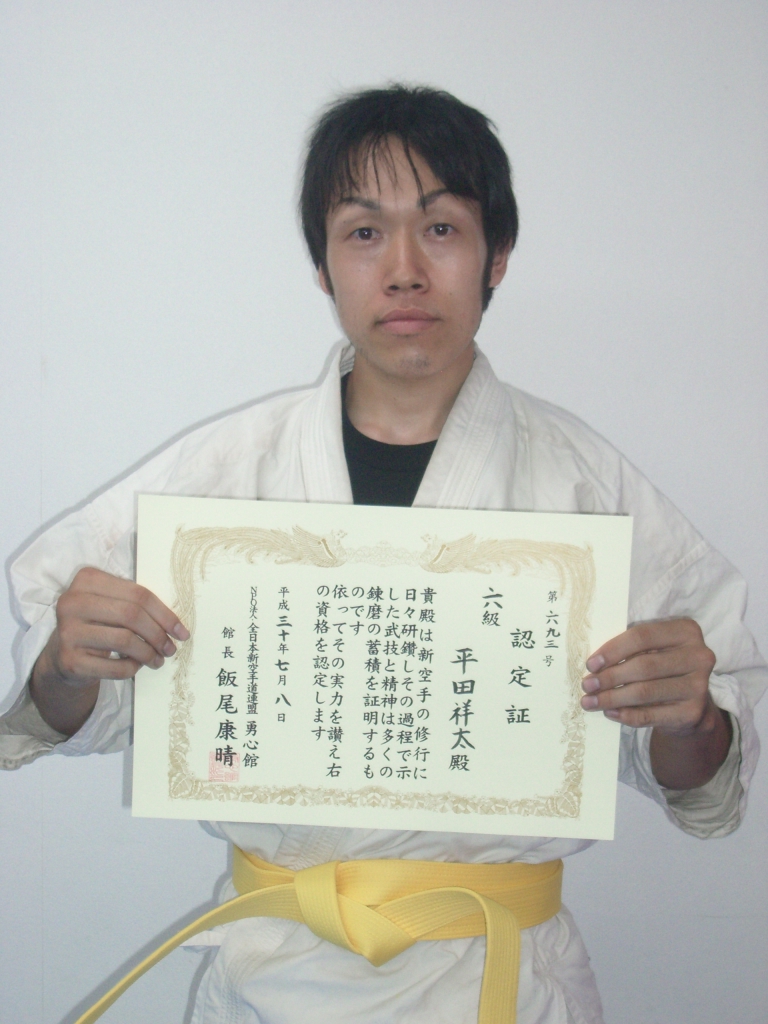 第六九三号
認定証
六級
平田祥太殿
貴殿は新空手の修行に
日々研鑽しその過程で示
した武技と精神は多くの
錬磨の蓄積を証明するも
のです
依ってその実力を讃え右
の資格を認定します
平成三十年七月八日
NPO法人全日本新空手道連盟 勇心館
館長 飯尾康晴